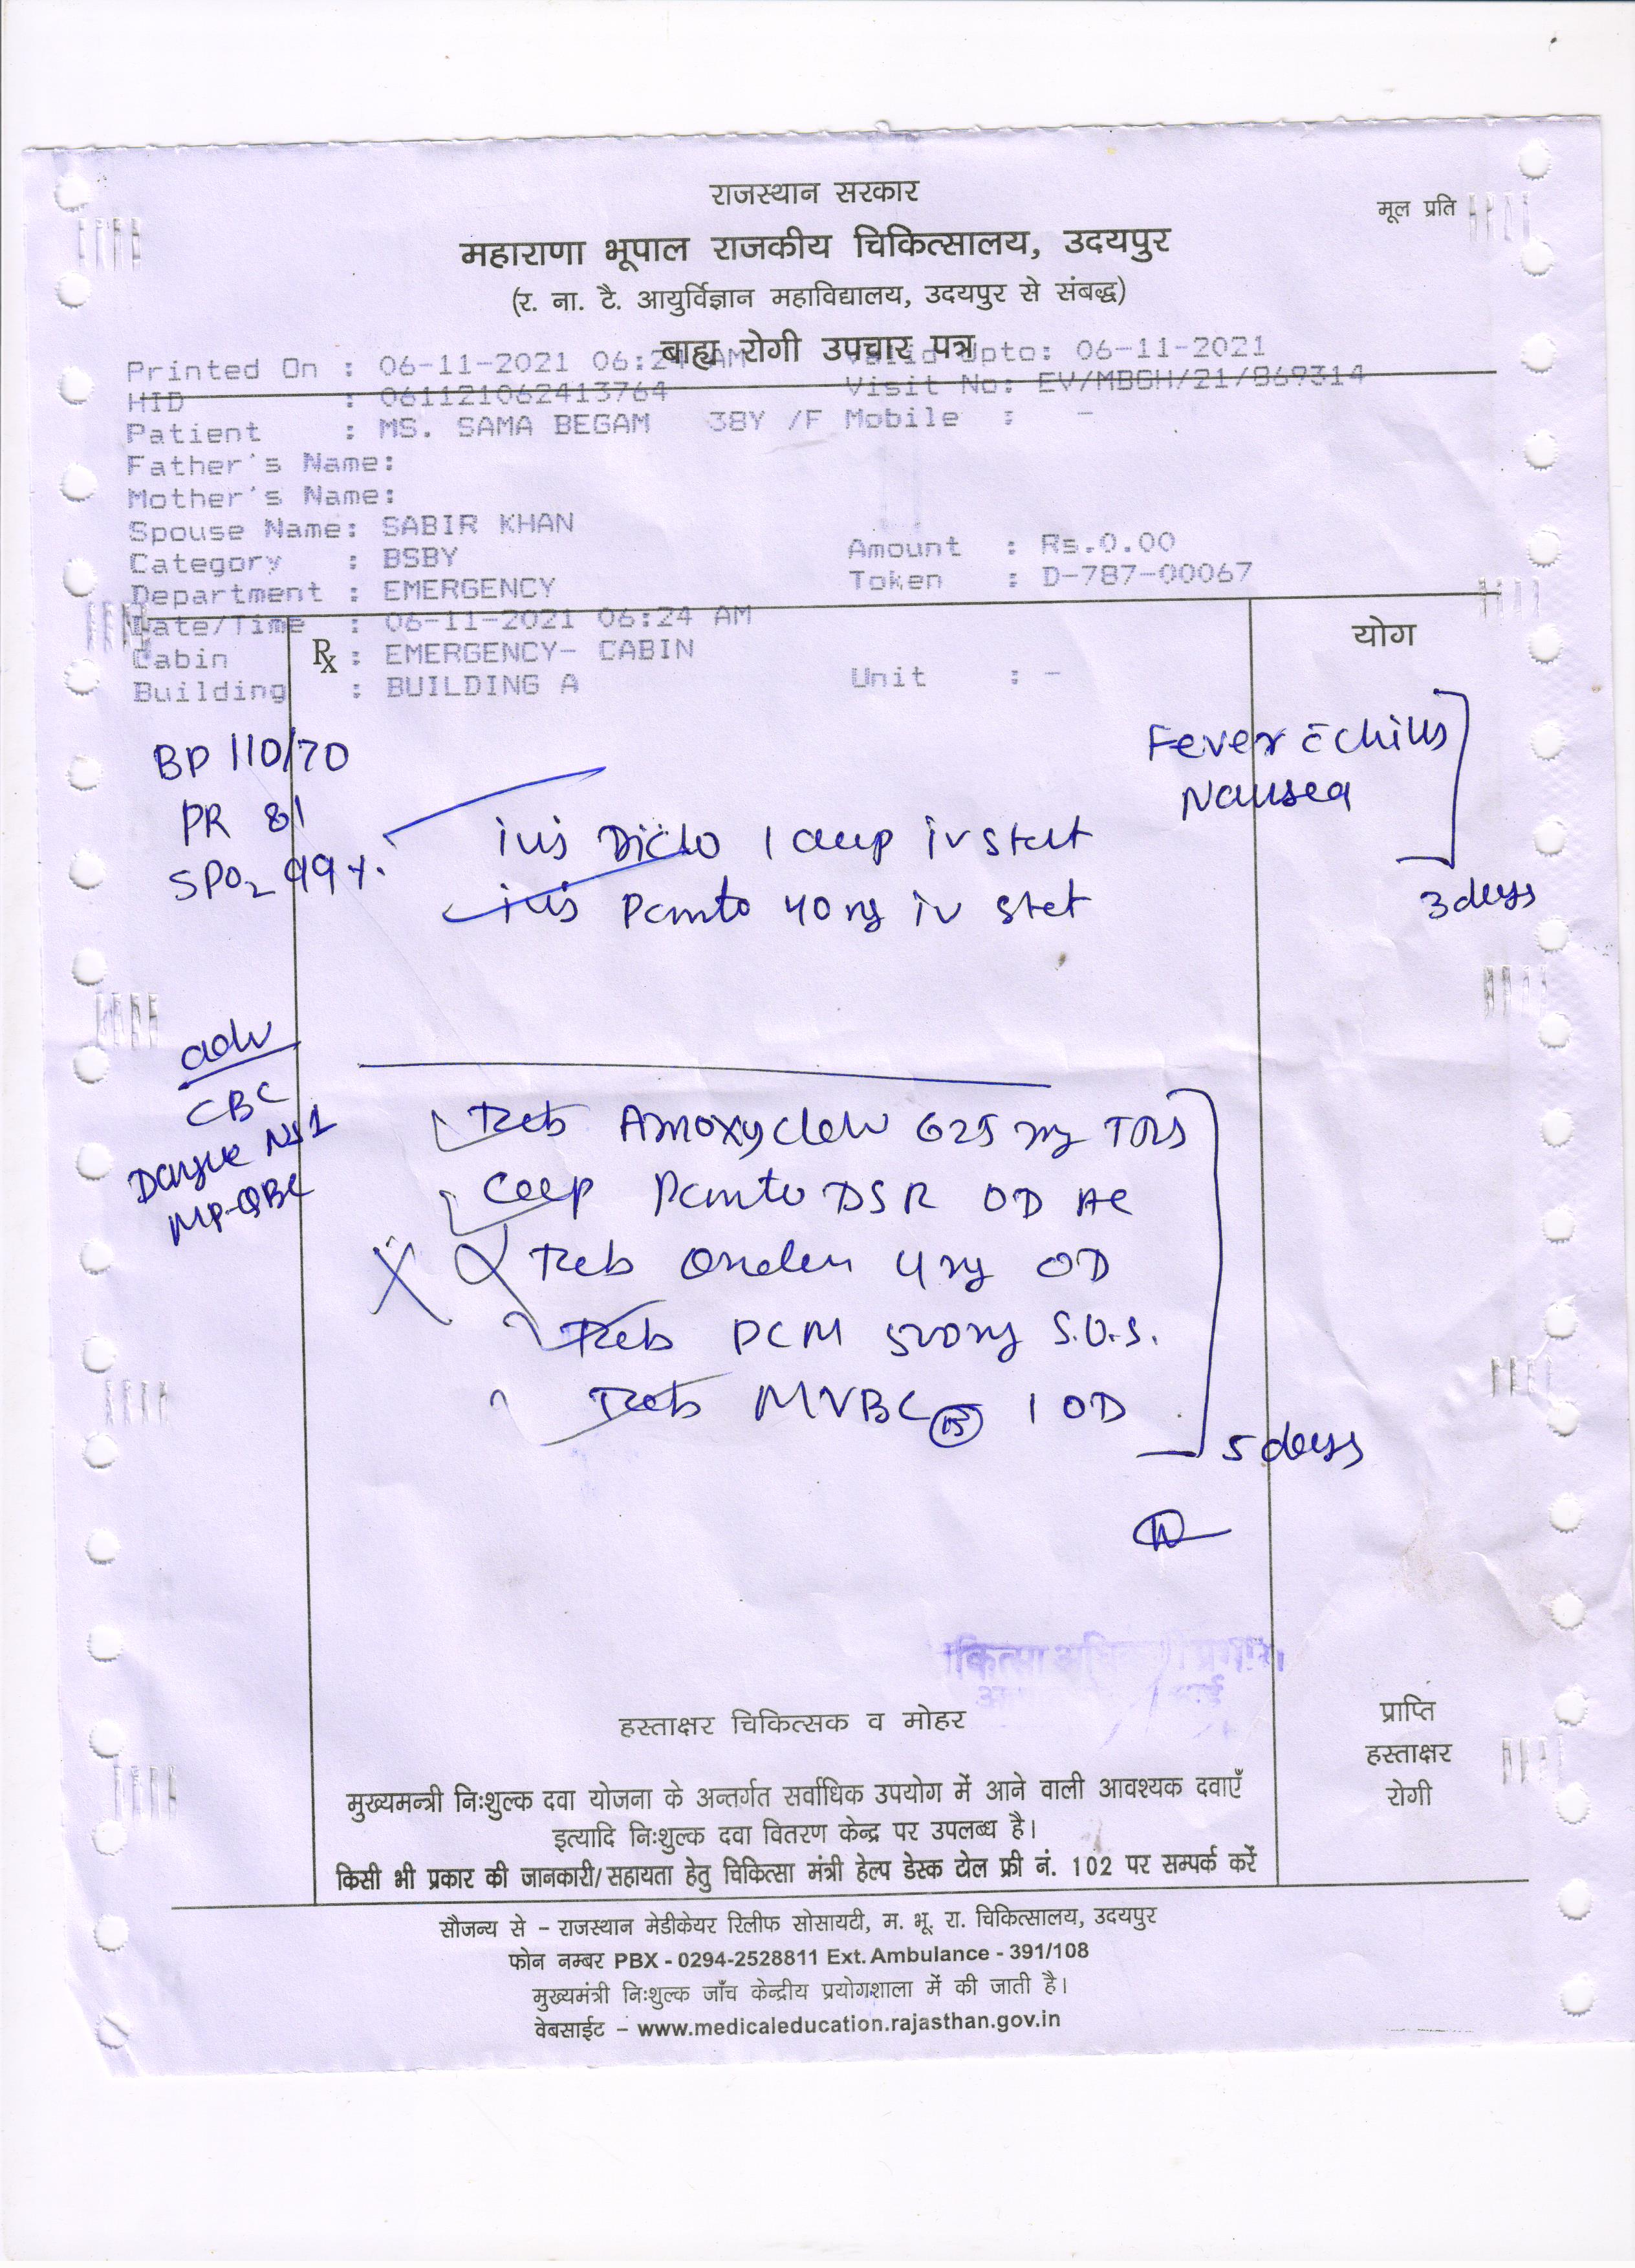 राजस्थान सरकार
मूल प्रति
महाराणा भूपाल राजकीय चिकित्सालय, उदयपुर
(र. ना. टै. आयुर्विज्ञान महाविद्यालय, उदयपुर से संबद्ध)
बाह्य रोगी उपचार पत्र
Printed On : 06-11-2021 06:24 AM Valid Upto: 06-11-2021
HID : 061121062413764 Visit No: EV/MBGH/21/869314
Patient : MS. SAMA BEGAM 38Y /F Mobile : -
Father's Name:
Mother's Name:
Spouse Name: SABIR KHAN
Category : BSBY Amount : Rs.0.00
Department : EMERGENCY Token : D-787-00067
Date/Time : 06-11-2021 06:24 AM
योग
Cabin : EMERGENCY- CABIN
Rx
Building : BUILDING A Unit : -
BP 110/70
PR 81
SPO2 99%
Fever c̄ chills
Nausea
3 days
inj Diclo 1 amp iv stat
inj Panto 40 mg iv stat
adv
CBC
Dengue NS1
MP-QBC
Tab Amoxyclav 625 mg TDS
Cap Panto DSR OD AC
Tab Ondem 4 mg OD
Tab PCM 500 mg S.O.S.
Tab MVBC 15 1 OD
5 days
हस्ताक्षर चिकित्सक व मोहर
प्राप्ति
हस्ताक्षर
रोगी
मुख्यमन्त्री निःशुल्क दवा योजना के अन्तर्गत सर्वाधिक उपयोग में आने वाली आवश्यक दवाएँ
इत्यादि निःशुल्क दवा वितरण केन्द्र पर उपलब्ध है।
किसी भी प्रकार की जानकारी/सहायता हेतु चिकित्सा मंत्री हेल्प डेस्क टोल फ्री नं. 102 पर सम्पर्क करें
सौजन्य से – राजस्थान मेडीकेयर रिलीफ सोसायटी, म. भू. रा. चिकित्सालय, उदयपुर
फोन नम्बर PBX - 0294-2528811 Ext. Ambulance - 391/108
मुख्यमंत्री निःशुल्क जाँच केन्द्रीय प्रयोगशाला में की जाती है।
वेबसाईट – www.medicaleducation.rajasthan.gov.in